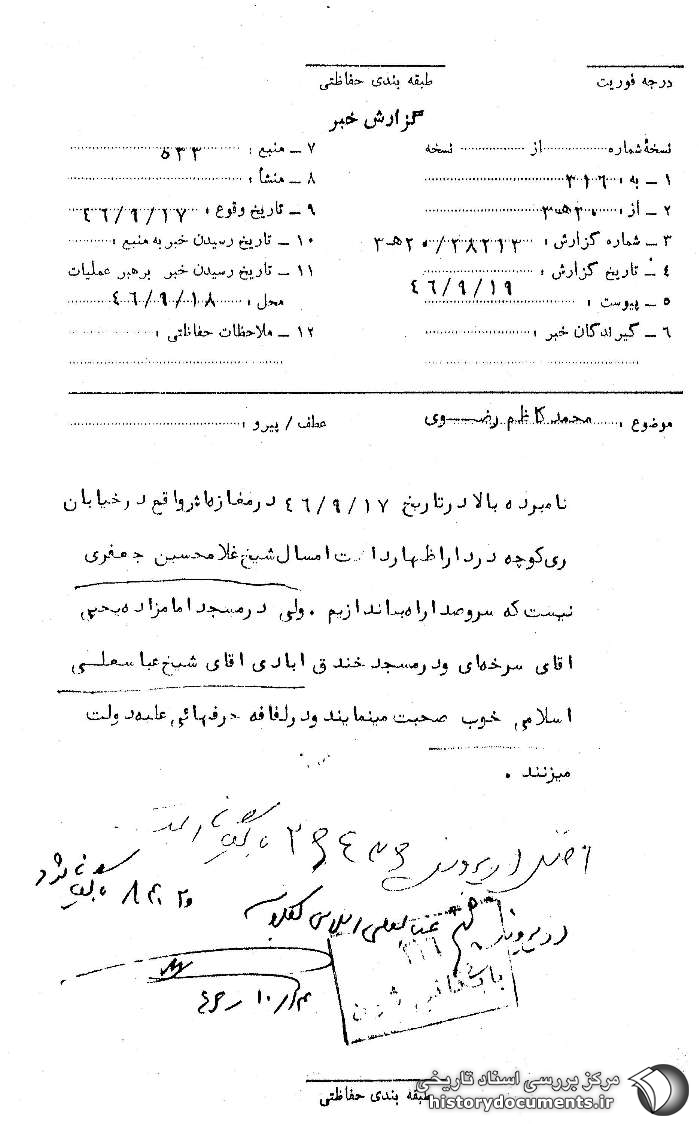 درجه فوریت
طبقه بندی حفاظتی
گزارش خبر
نسخهٔ شماره از نسخه
۱ ـ به : ۳۱۶
۲ ـ از : ۲۰ه۳
۳ ـ شماره گزارش : ۲۰/۲۸۲۱۳ه۳
۴ ـ تاریخ گزارش : ۴۶/۹/۱۹
۵ ـ پیوست :
۶ ـ گیرندگان خبر :
۷ ـ منبع : ۵۳۳
۸ ـ منشأ :
۹ ـ تاریخ وقوع : ۴۶/۹/۱۷
۱۰ ـ تاریخ رسیدن خبر به منبع :
۱۱ ـ تاریخ رسیدن خبر برهبر عملیات
محل : ۴۶/۹/۱۸
۱۲ ـ ملاحظات حفاظتی :
موضوع : محمد کاظم رضوی
عطف / پیرو :
نامبرده بالا درتاریخ ۴۶/۹/۱۷ درمغازه‌اش واقع درخیابان
ری کوچه دردار اظهارداشت امسال شیخ غلامحسین جعفری
نیست که سروصدا راه بیاندازیم . ولی درمسجد امامزاده یحیی
اقای سرخه‌ای ودرمسجد خندق ابادی اقای شیخ عباسعلی
اسلامی خوب صحبت مینمایند ودرلفافه حرفهائی علیه دولت
میزنند .
بایگانی شود
۳۱۶
طبقه بندی حفاظتی
مرکز بررسی اسناد تاریخی
historydocuments.ir